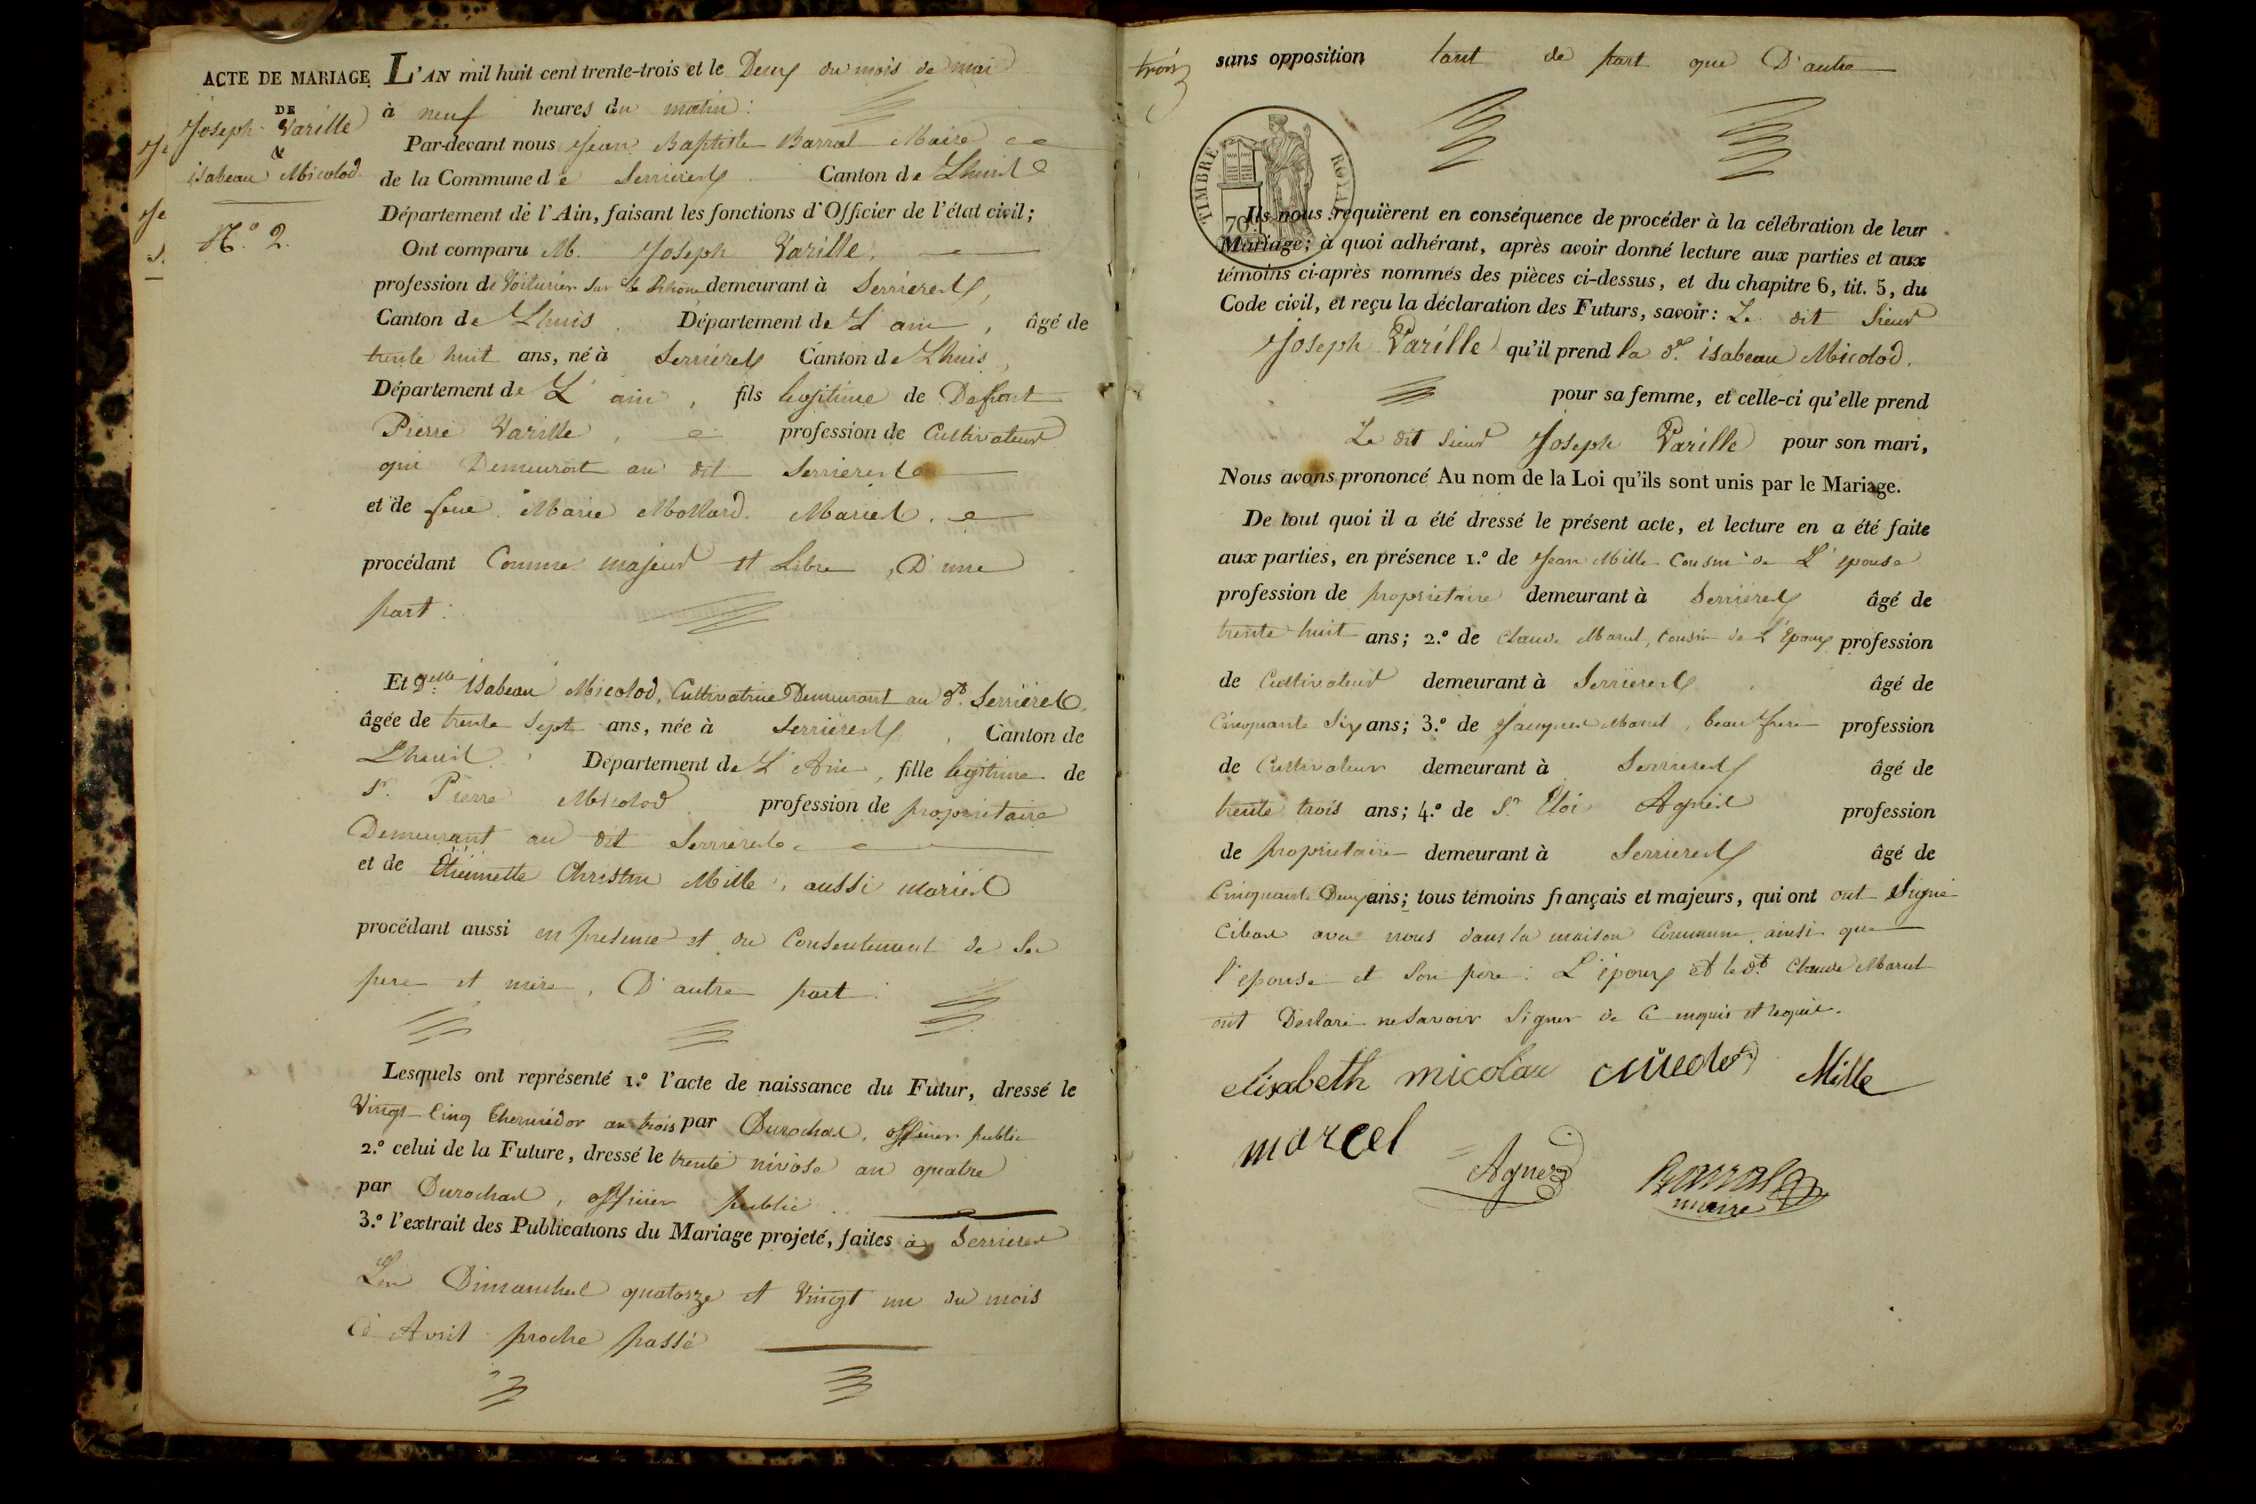 ACTE DE MARIAGE
DE
Joseph Varille
&
isabeau Micolod
N.º 2.
L'AN mil huit cent trente-trois et le Deux du mois de mai
à neuf heures du matin :
Par-devant nous Jean Baptiste Barral Maire
de la Commune de Serrieres Canton de Lhuis
Département de l'Ain, faisant les fonctions d'Officier de l'état civil ;
Ont comparu M. Joseph Varille,
profession de Voiturier sur le Rhone demeurant à Serrieres,
Canton de Lhuis, Département de L'ain, âgé de
trente huit ans, né à Serrieres Canton de Lhuis,
Département de L'ain, fils legitime de Defunt
Pierre Varille, profession de Cultivateur
qui Demeurait au dit Serrieres
et de feue Marie Mollard. Mariés.
procédant Comme majeur et Libre, D'une
part :
Et Delle isabeau Micolod, Cultivatrice Demeurant au dt. Serrieres.
âgée de trente Sept ans, née à Serrieres, Canton de
Lhuis. Département de L'Ain, fille legitime de
Sr. Pierre Micolod profession de propriétaire
Demeurant au dit Serrieres
et de Etiennette Christin Mille, aussi mariés
procédant aussi en presence et du Consentement de Ses
pere et mere, D'autre part :
Lesquels ont représenté 1.º l'acte de naissance du Futur, dressé le
Vingt-Cinq thermidor an trois par Durochat, officier public
2.º celui de la Future, dressé le trente nivôse an quatre
par Durochat, officier public
3.º l'extrait des Publications du Mariage projeté, faites à Serrieres
Les Dimanches quatorze et Vingt un du mois
d'Avril proche passé
trois
sans opposition tant de part que D'autre
TIMBRE ROYAL
70
Ils nous requièrent en conséquence de procéder à la célébration de leur
Mariage ; à quoi adhérant, après avoir donné lecture aux parties et aux
témoins ci-après nommés des pièces ci-dessus, et du chapitre 6, tit. 5, du
Code civil, et reçu la déclaration des Futurs, savoir : Le dit Sieur
Joseph Varille qu'il prend la de. isabeau Micolod.
pour sa femme, et celle-ci qu'elle prend
Le dit Sieur Joseph Varille pour son mari,
Nous avons prononcé Au nom de la Loi qu'ils sont unis par le Mariage.
De tout quoi il a été dressé le présent acte, et lecture en a été faite
aux parties, en présence 1.º de Jean Mille Cousin de L'epouse
profession de propriétaire demeurant à Serrieres âgé de
trente huit ans ; 2.º de Claude Marcel, Cousin de L'Epoux profession
de Cultivateur demeurant à Serrieres âgé de
Cinquante Six ans ; 3.º de Jacques Marcel, beau frere profession
de Cultivateur demeurant à Serrieres âgé de
trente trois ans ; 4.º de Sr. Eloi Agniel profession
de propriétaire demeurant à Serrieres âgé de
Cinquante Deux ans ; tous témoins français et majeurs, qui ont ont Signé
avec nous dans la maison Commune, ainsi que
l'epouse et Son pere : L'époux et le dt. Claude Marcel
ont Declaré ne Savoir Signer de Ce enquis et requis.
elisabeth micolau Mille
marcel
Barral
maire